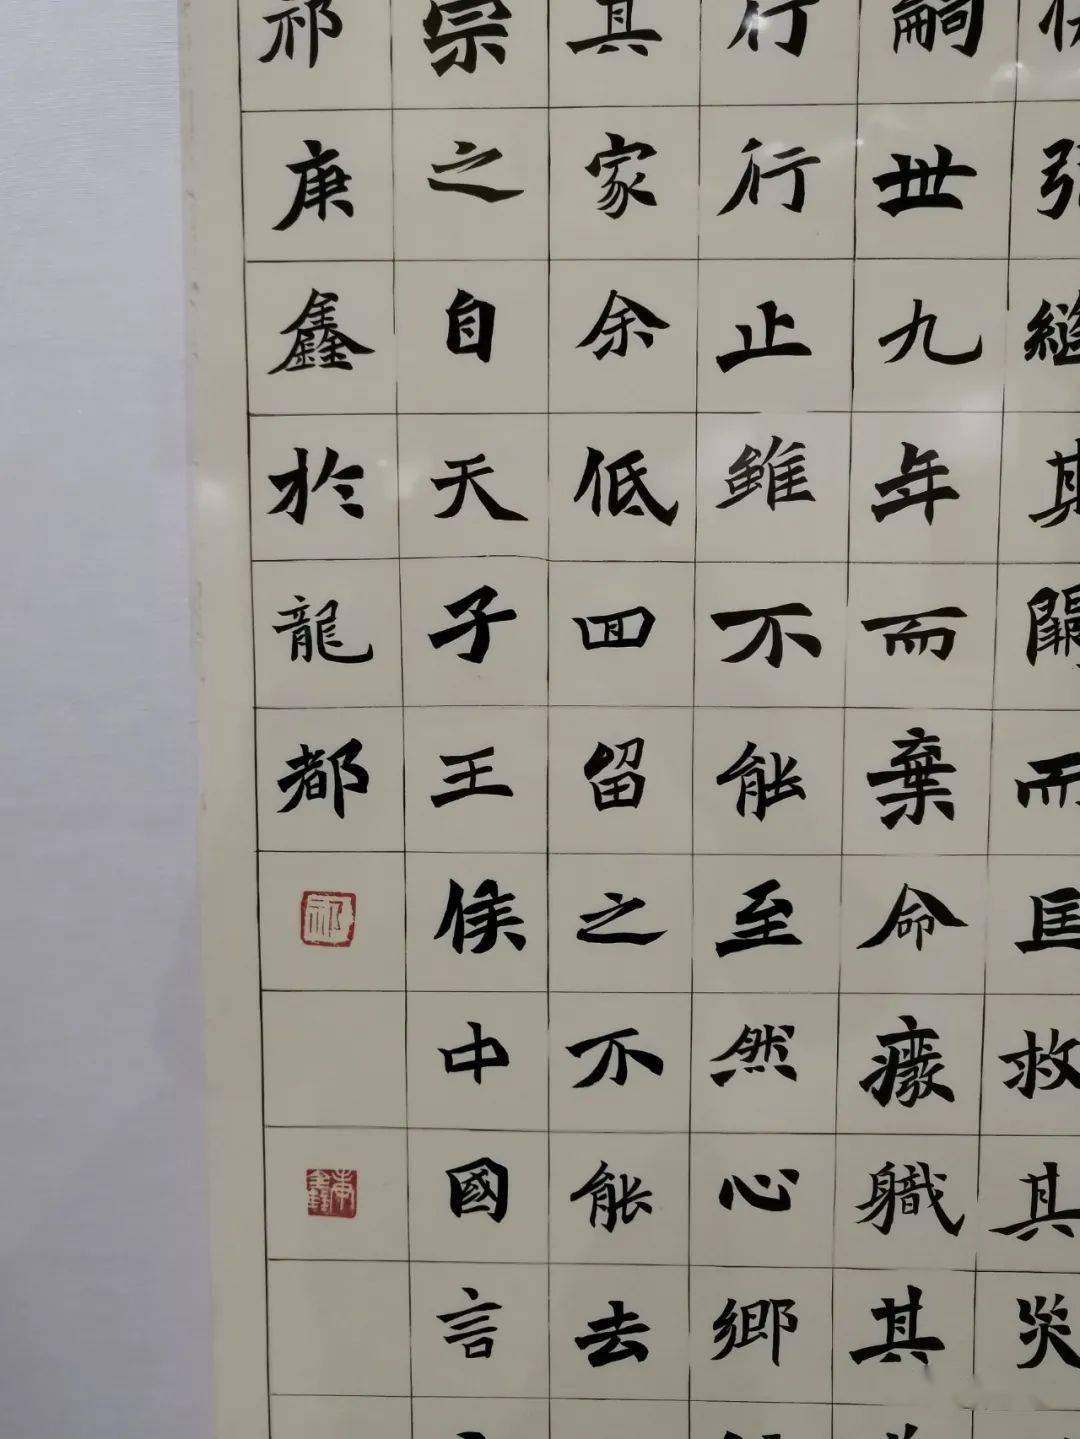 張縫其闕而匡救其災
嗣世九年而棄命廢職其
行行止雖不能至然心鄉
其家余低回留之不能去
宗之自天子王侯中國言
祁庚鑫於龍都
祁
庚鑫